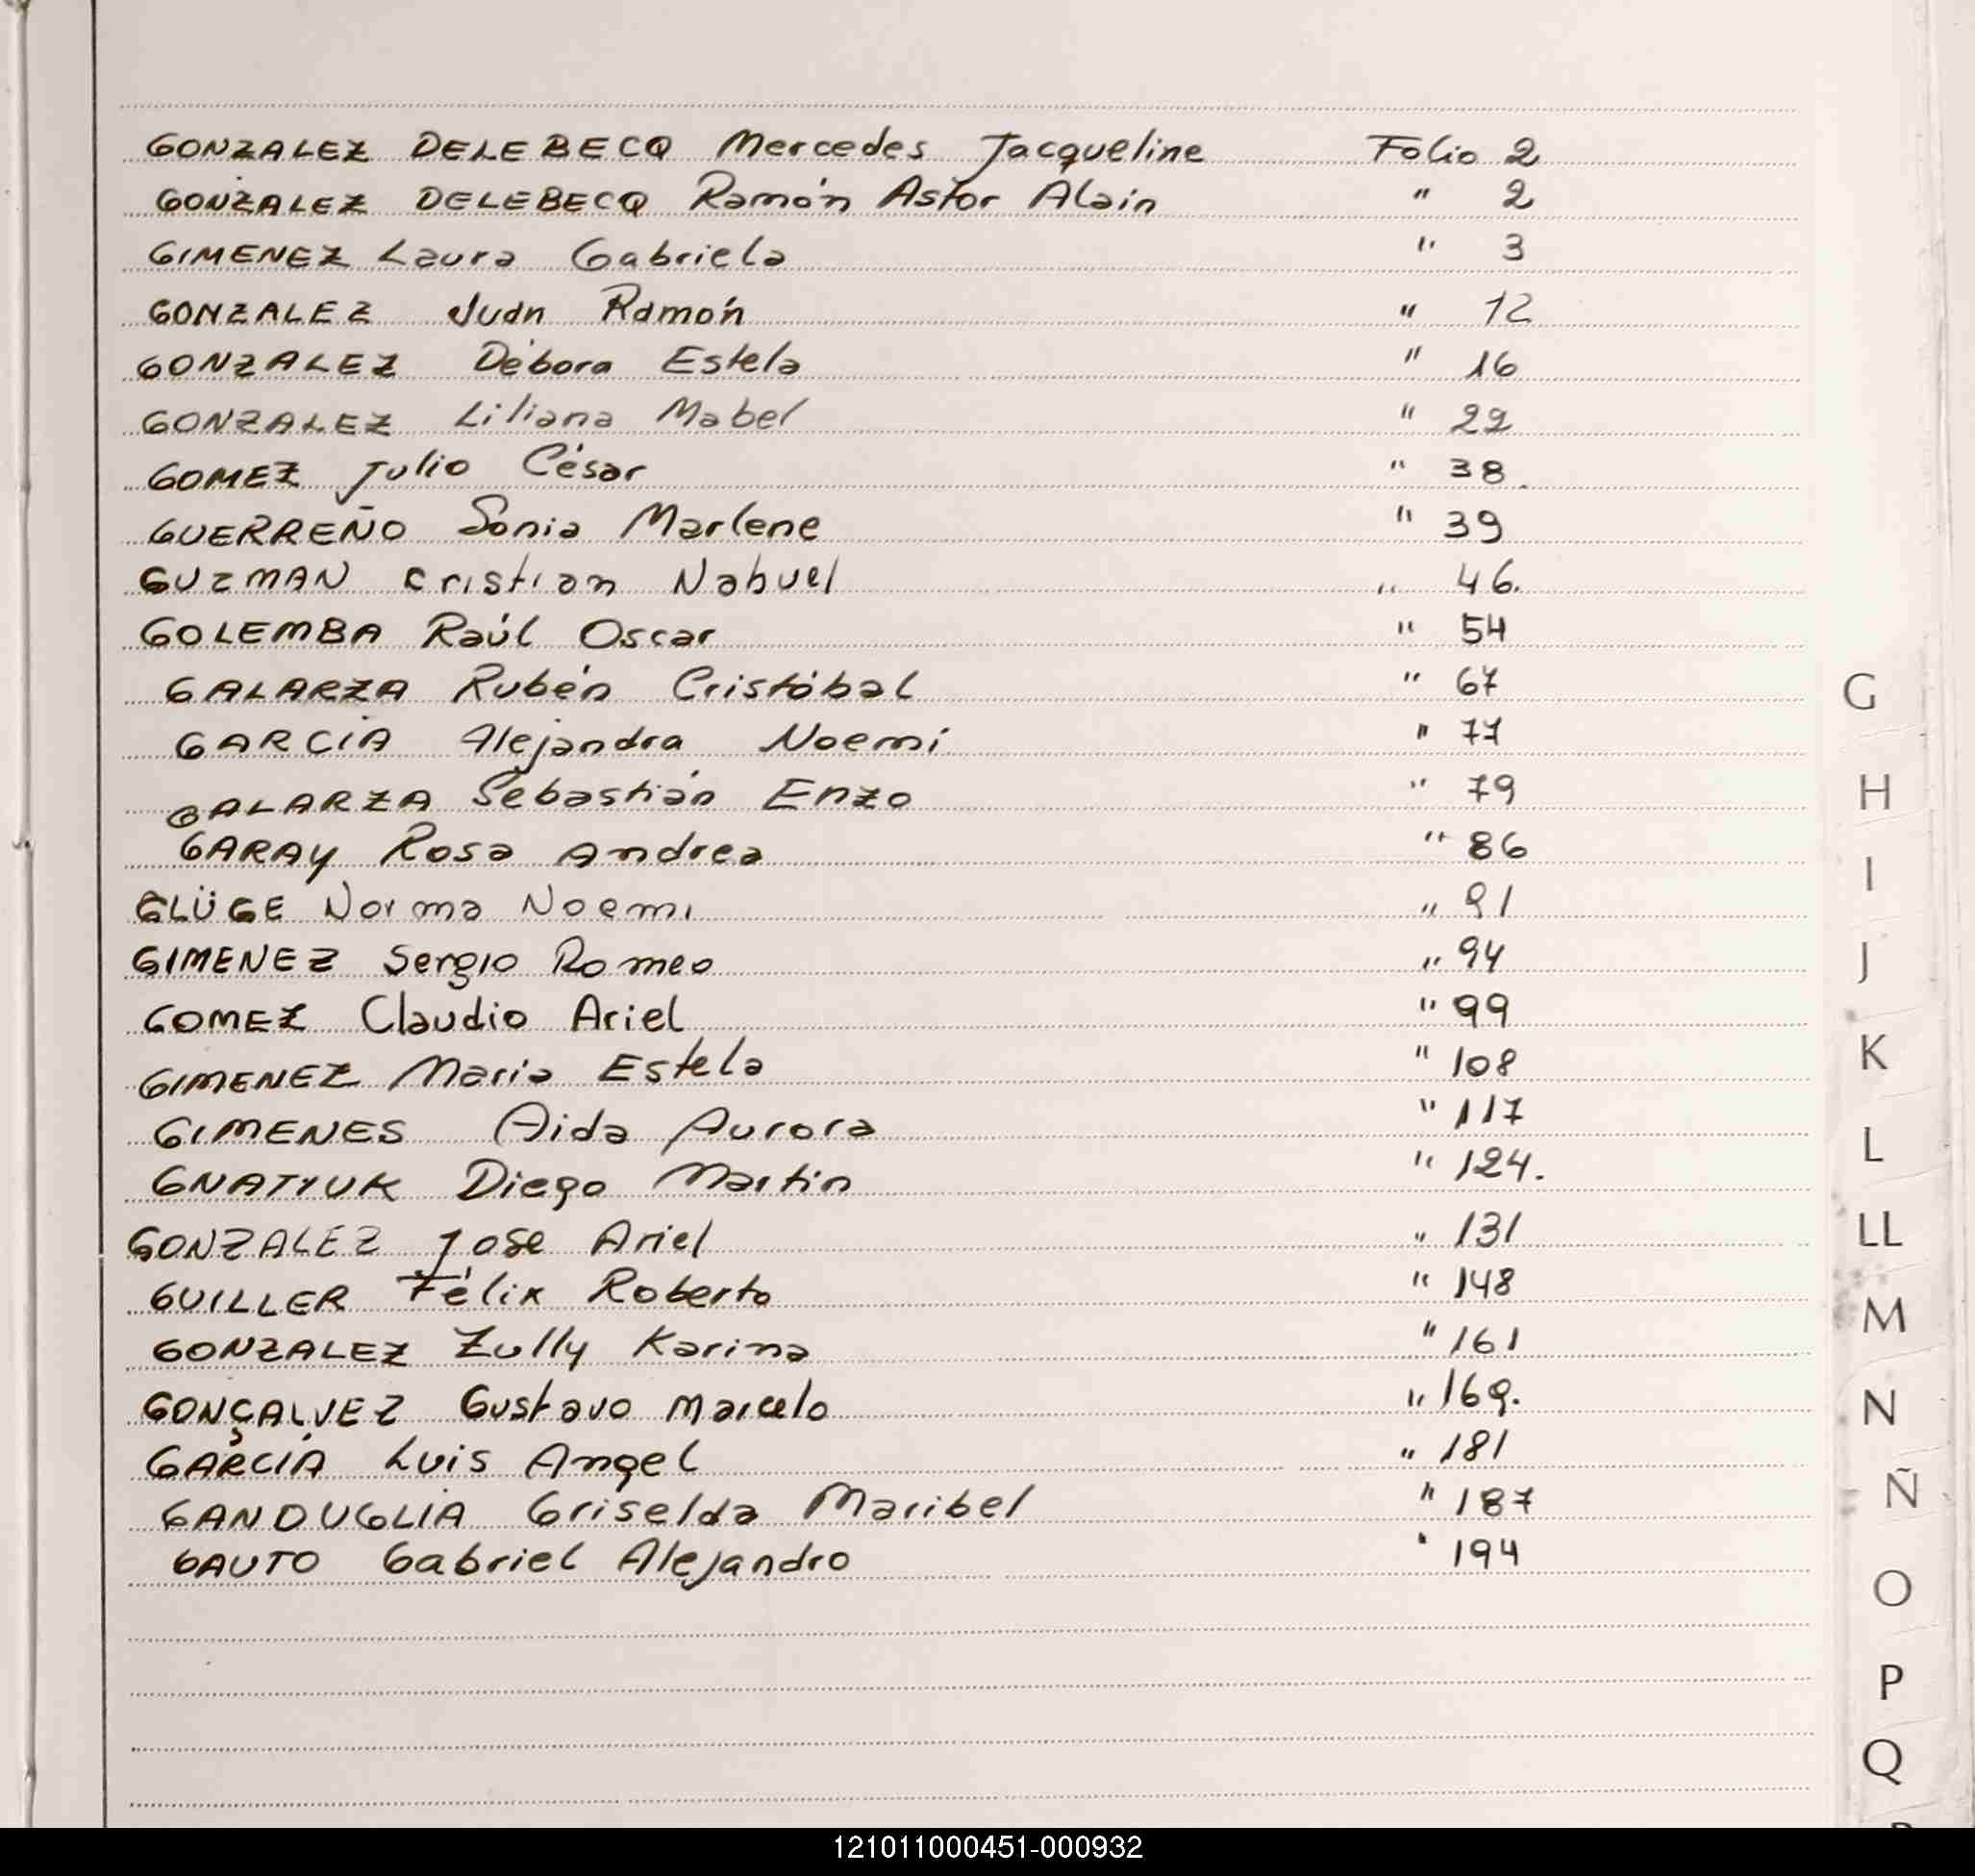 GONZALEZ DELEBECQ Mercedes Jacqueline Folio 2
GONZALEZ DELEBECQ Ramón Astor Alain " 2
GIMENEZ Laura Gabriela " 3
GONZALEZ Juan Ramón " 12
GONZALEZ Débora Estela " 16
GONZALEZ Liliana Mabel " 22
GOMEZ Julio César " 38.
GUERREÑO Sonia Marlene " 39
GUZMAN Cristian Nahuel " 46.
GOLEMBA Raúl Oscar " 54
GALARZA Rubén Cristóbal " 67
GARCÍA Alejandra Noemi " 77
GALARZA Sebastián Enzo " 79
GARAY Rosa Andrea " 86
GLÜGE Norma Noemi " 91
GIMENEZ Sergio Romeo " 94
GOMEZ Claudio Ariel " 99
GIMENEZ Maria Estela " 108
GIMENES Aida Aurora " 117
GNATIUK Diego Martin " 124.
GONZALEZ Jose Ariel " 131
GUILLER Félix Roberto " 148
GONZALEZ Zully Karina " 161
GONÇALVEZ Gustavo Marcelo " 169.
GARCÍA Luis Angel " 181
GANDUGLIA Griselda Maribel " 187
GAUTO Gabriel Alejandro " 194
G
H
I
J
K
L
LL
M
N
Ñ
O
P
Q
121011000451-000932